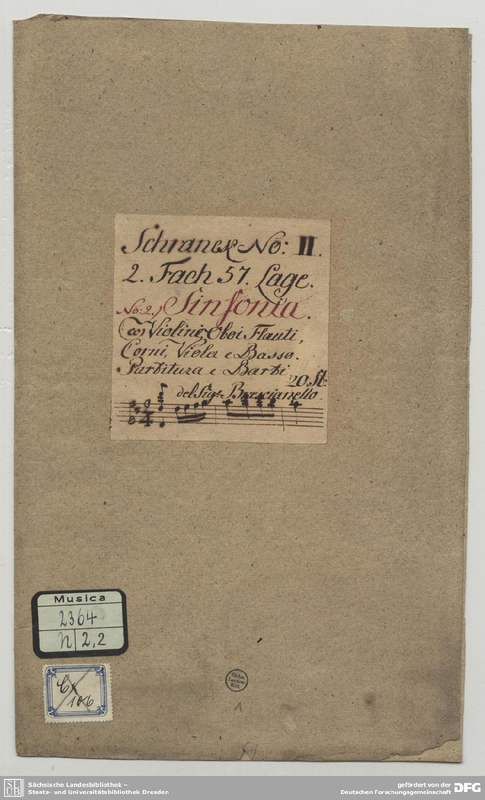 Schranck No: II.
2. Fach 57. Lage.
No: 2.) Sinfonia.
Co Violini, Oboi Flauti,
Corni, Viola e Basso.
Partitura e Parti
20. St:
del Sigr Brescianello.
Musica
2364
N/2,2
Cx
106
Sächs.
Landes-
Bibl.
1
SLUB
Sächsische Landesbibliothek –
Staats- und Universitätsbibliothek Dresden
gefördert von der
Deutschen Forschungsgemeinschaft
DFG